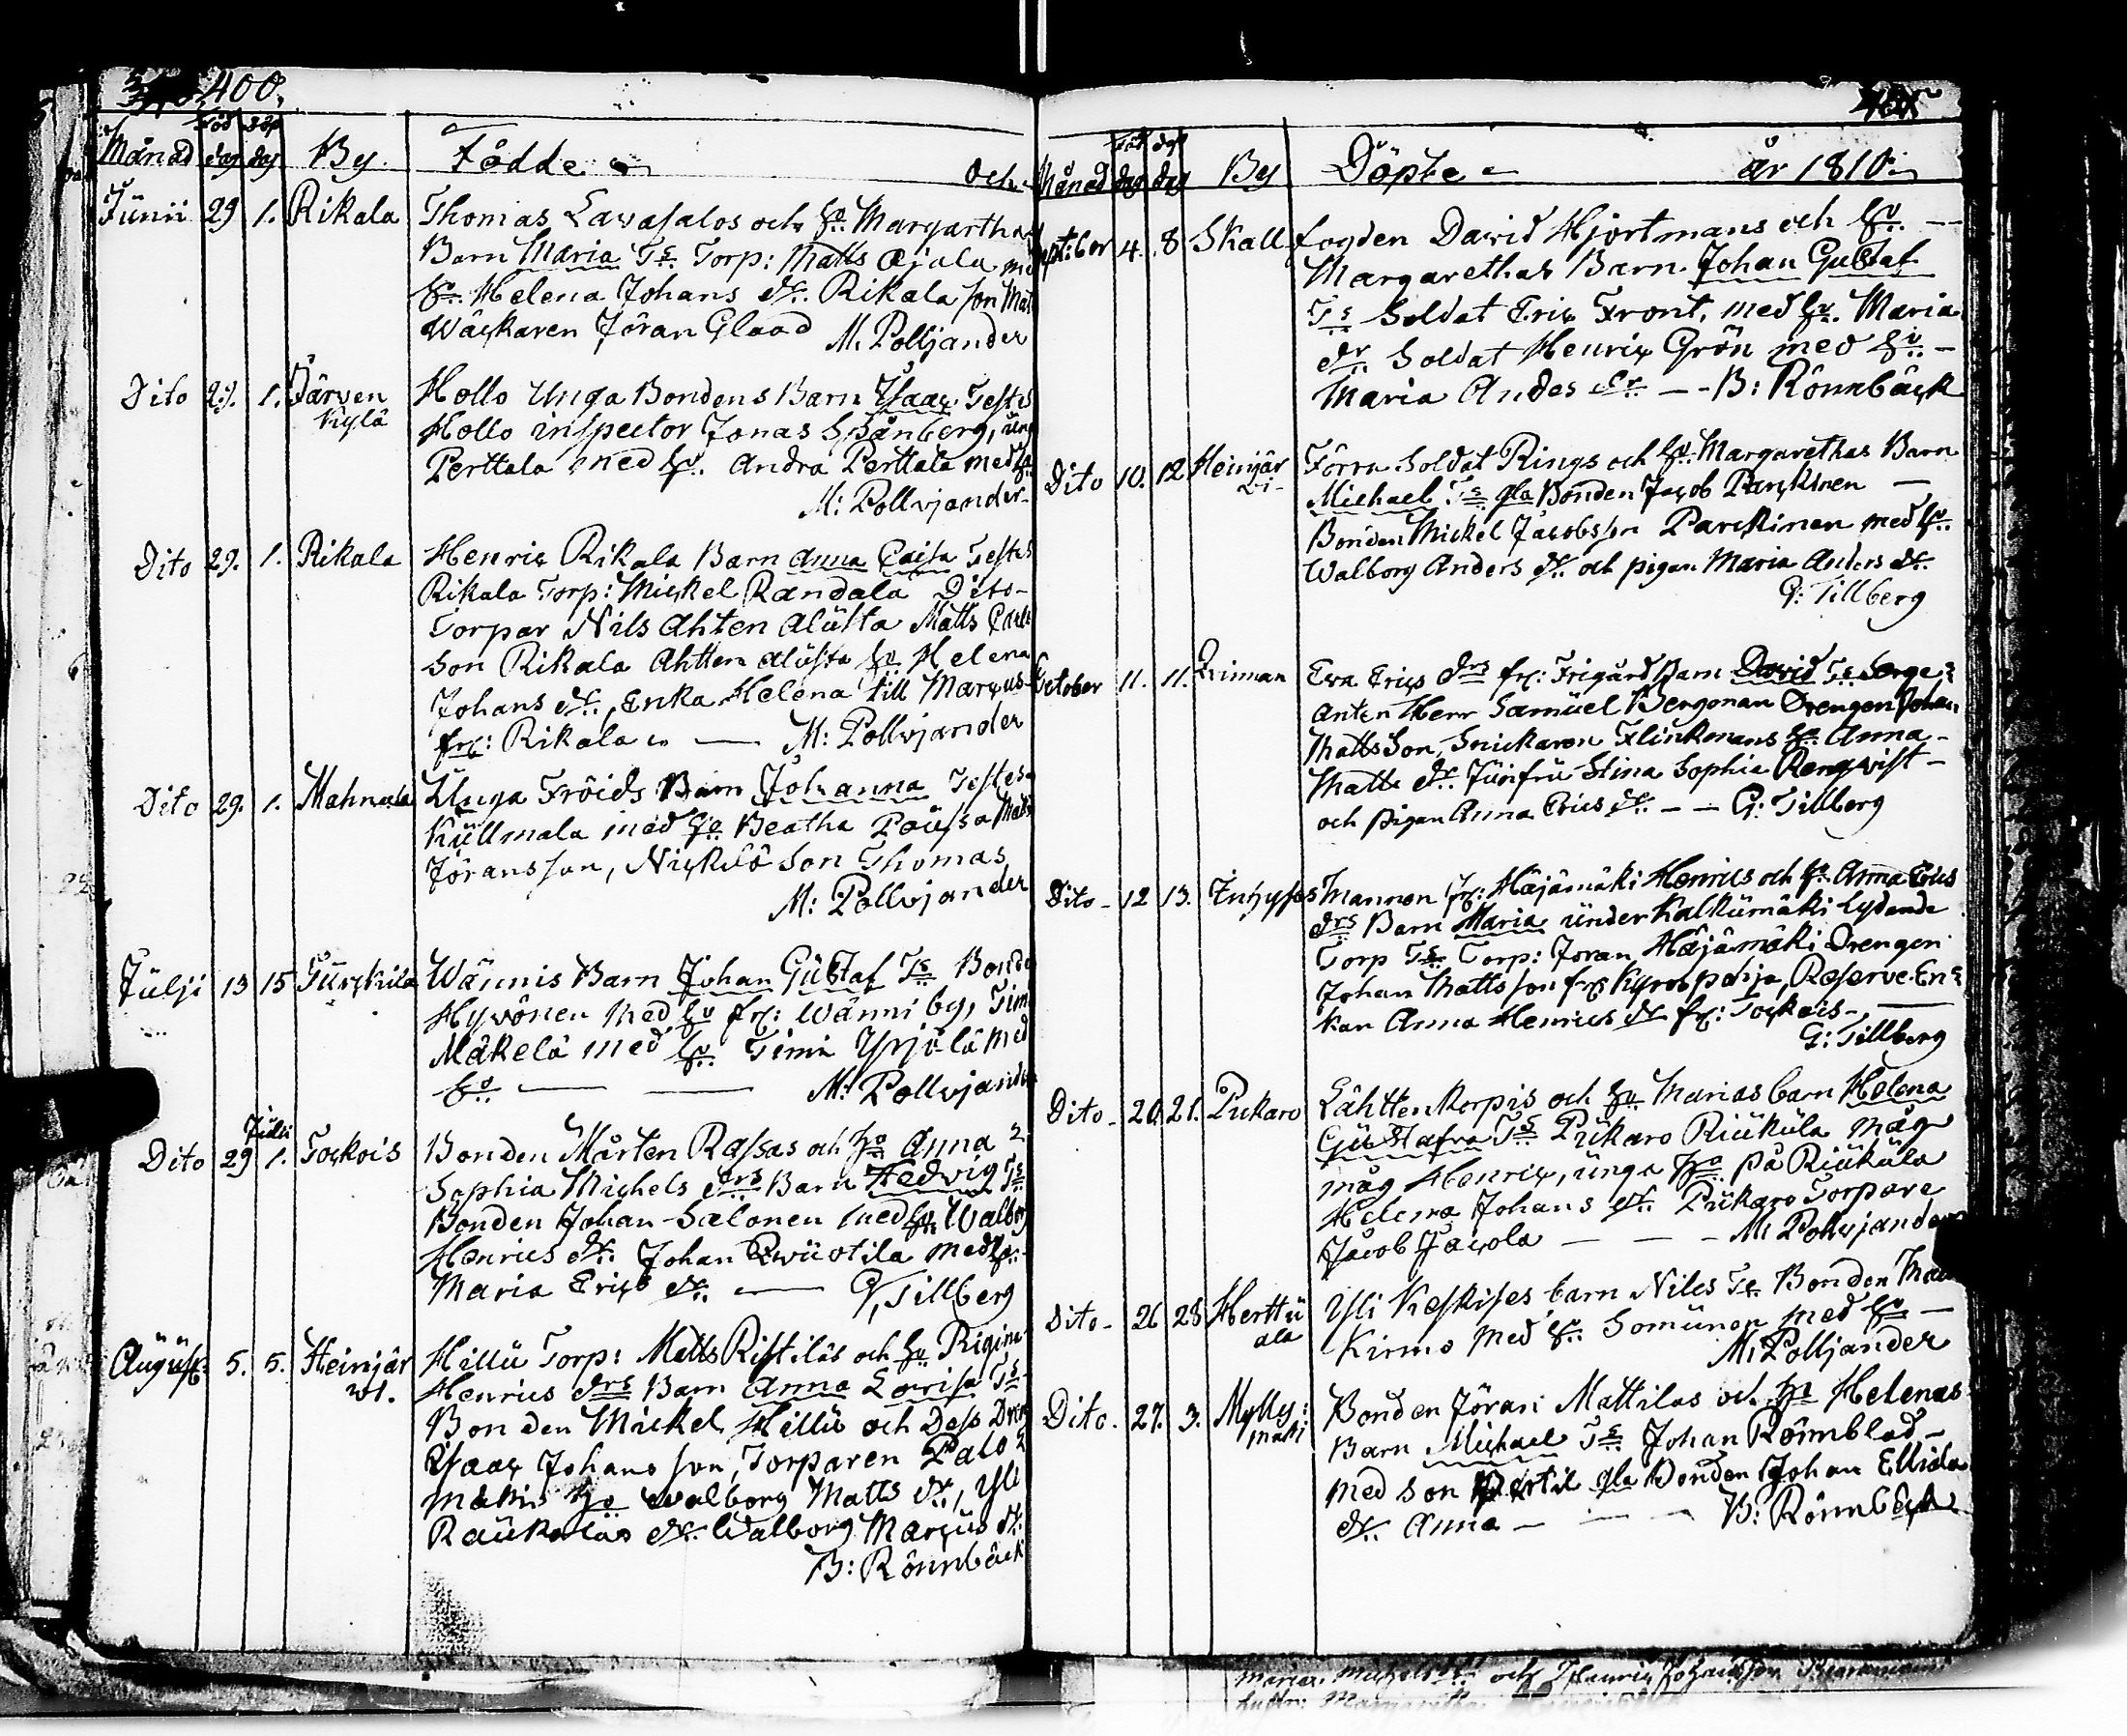 400.
Månad Föd dag döp dag By. Födde och
Junii 29 1. Rikala Thomas Lavasalos och Margartha
Barn Maria Ts. Torp: Matts Ojala
Helena Johans dr. Rikala son
Wäckaren Jöran Glaad M. Polljander
Dito 29. 1. Järven kylä Hollo Unga Bondens Barn Isaac Testes
Hollo inspector Jonas Spånberg,
Perttala med hu. Andra Perttala med
M: Pollvjander
Dito 29. 1. Rikala Henric Rikala Barn Anna Caisa Testes
Rikala Torp: Mickel Randala Dito
Torpar Nils Ahten Alusta Matts
Son Rikala Ahtten alusta hu Helena
Johans dr., Enka Helena till Marcus
fr: Rikala M: Pollvjander
Dito 29. 1. Mahnala Unga Fröids Barn Johanna Testes
Kullmala med hu Beatha
Jöransson, Nickilä Son Thomas
M: Pollvjander
Julji 13 15 Turckila Wännis Barn Johan Gustaf Ts Bonde
Hyvönen med hu fr: Wänni by,
Mäkelä med hu. Timi Yrjölä med
hu. M: Pollvjander
Dito 29 Julii 1. Tockois Bonden Mårten Rassas och hu Anna
Sophia Michels drs Barn Hedvig Ts
Bonden Johan Salonen med hu Walborg
Henrics dr. Johan med hu.
Maria Erics dr. G. Tillberg
August: 5. 5. Heinjär wi. Hillu Torp: Matts Ristiläs och hu Rigina
Henrics drs Barn Anna Lovisa Ts
Bonden Mickel Hillu och Dess
Isaac Johans son, Torparen Palo
mäkis hu Walborg Matts dr, Yli
Raukolas dr. Walborg Marcus dr.
B: Rönnbäck
Månad Föd dag döp dag By Döpte år 1810.
4. 8 Skall fogden David Hjortmans och hu.
Margarethas Barn Johan Gustaf
Ts Soldat Eric Front, med hu. Maria
dr. Soldat Henric Grön med hu.
Maria Andes dr B: Rönnbäck
Dito 10. 12 Heinjär wi Förra Soldat Rings och hu Margarethas Barn
Michael Ts gla Bonden Jacob Parckinen
Bonden Mickel Jacobsson Parckinen med hu.
Walborg Anders dr. och pigan Maria Anders dr.
G: Tillberg
October 11. 11. Ewa Erics drs fr: Frigård Barn David Ts Serge
anten Herr Samuel Bergman Drengen Johan
Matts Son, Snickaren Flinkmans hu Anna
Matts dr. Jungfru Stina Sophia Renqvist
och pigan Anna Erics dr. G: Tillberg
Dito 12 13. Inhyses Mannen fr: Häjämäki Henrics och hu Anna Erics
drs Barn Maria under Kalkumäki lydande
Torp Ts Torp: Joran Häjämäki Drengen
Johan Matts son fr: Kyrospohja, Reserve-En
kan Anna Henrics dr fr: Tockois
G: Tillberg
Dito 20. 21. Pukaro Lähttenkorpis och hu Marias barn Helena
Gustafva Ts Pukaro Riukula måg
måg Henric, unga hu på Riukula
Helena Johans dr Pukaro Torpare
Jacob Jacola M: Pollvjander
Dito 26 28 Herttu ala Yli Keskises barn Niles Ts Bonden
Kirmo med hu. Somunon med hu
M. Polljander
Dito. 27. 3. Mylly: mäki Bonden Jöran Mattilas och hu Helenas
Barn Michael Ts Johan Rönnblad
med son Pertil gla Bonden Johan
dr. Anna B: Rönnbäck